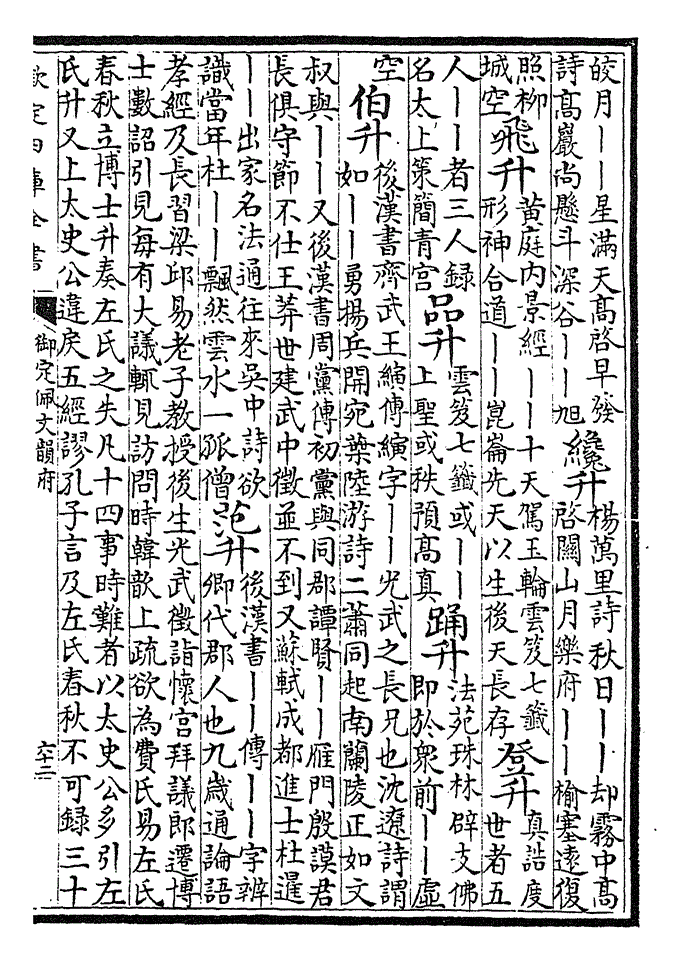 皎月丨丨星滿天高啓早發
詩高巖尚懸斗深谷丨丨旭
纔升
楊萬里詩秋日丨丨却霧中高
啓關山月樂府丨丨榆塞遠復
照柳
城空
飛升
黄庭内景經丨丨十天駕玉輪雲笈七籤
形神合道丨丨崑崙先天以生後天長存
登升
真誥度
世者五
人丨丨者三人録
名太上策簡青宫
品升
雲笈七籤或丨丨
上聖或秩預髙真
踊升
法苑珠林辟支佛
即於衆前丨丨虚
空
伯升
後漢書齊武王縯傳縯字丨丨光武之長兄也沈遼詩謂
如丨丨勇揚兵開宛葉陸游詩二蕭同起南蘭陵正如文
叔與丨丨又後漢書周黨傳初黨與同郡譚賢丨丨雁門殷謨君
長俱守節不仕王莽世建武中徵並不到又蘇軾成都進士杜暹
丨丨出家名法通往來吳中詩欲
識當年杜丨丨飄然雲水一孤僧
范升
後漢書丨丨傳丨丨字辨
卿代郡人也九歲通論語
孝經及長習梁邱易老子教授後生光武徵詣懷宫拜議郎遷博
士數詔引見每有大議輒見訪問時韓歆上疏欲為費氏易左氏
春秋立博士升奏左氏之失凡十四事時難者以太史公多引左
氏升又上太史公違戾五經謬孔子言及左氏春秋不可録三十
欽定四庫全書
御定佩文韻府
六十二